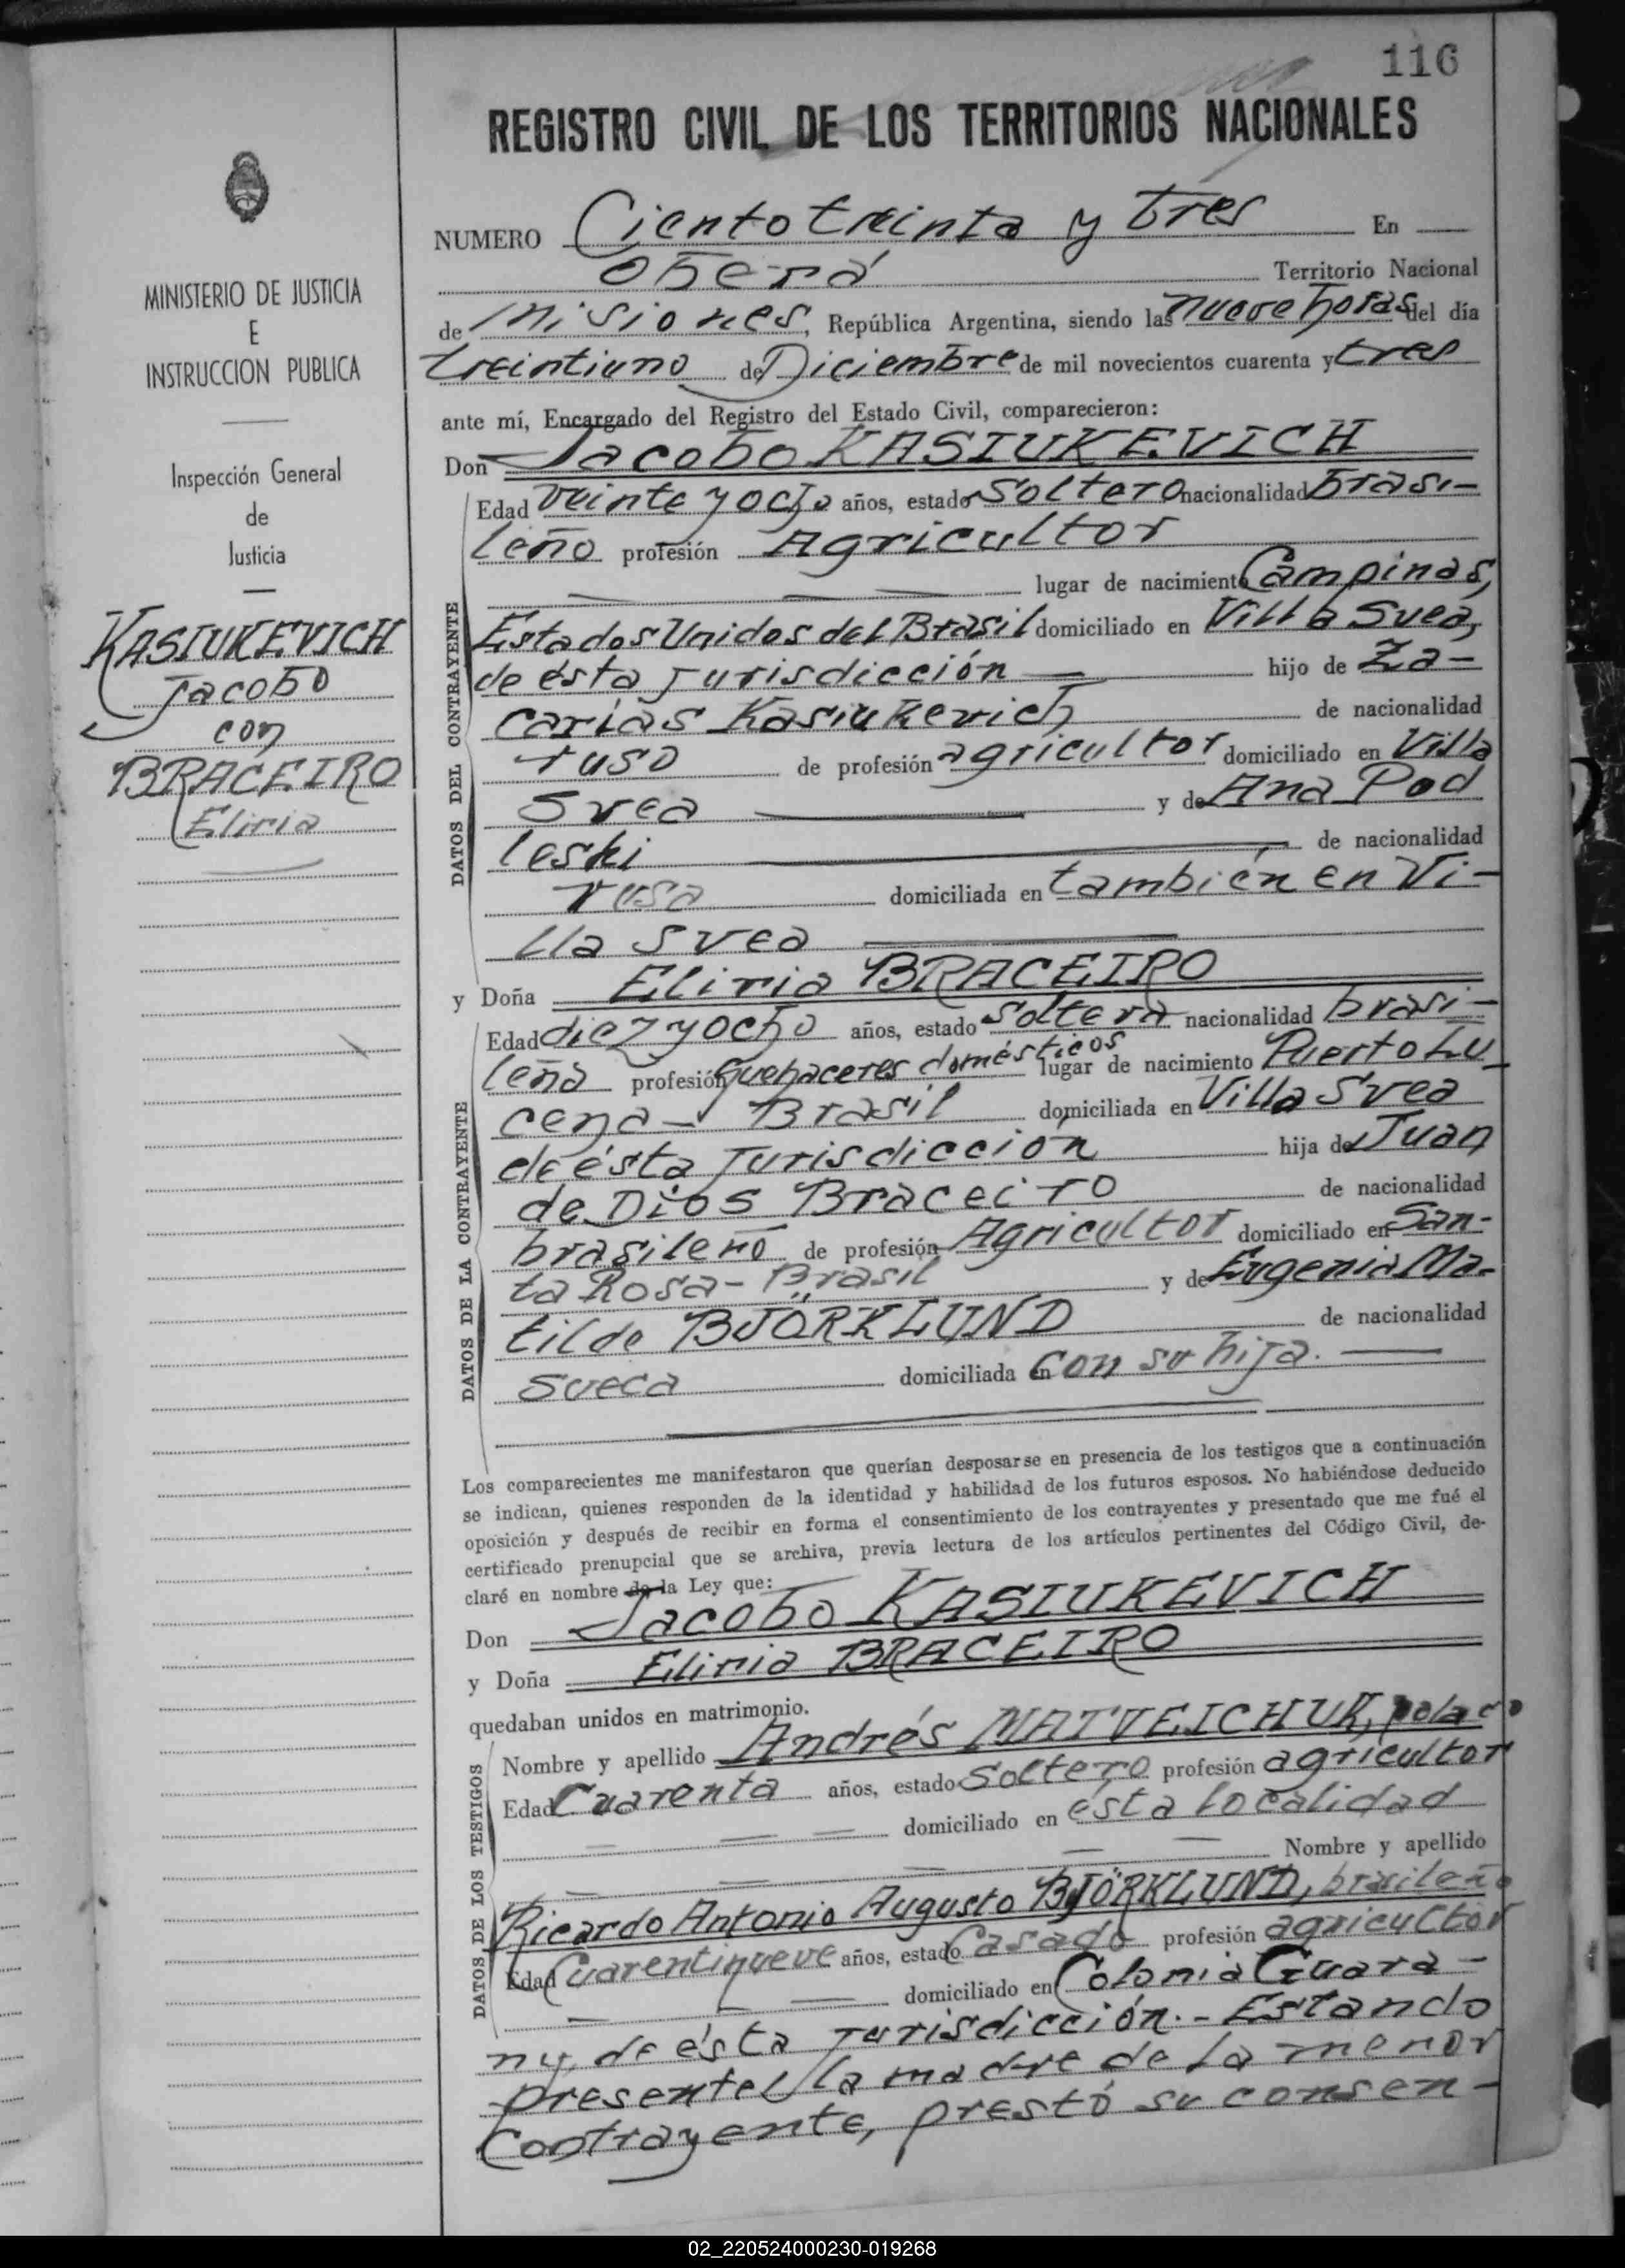 116
REGISTRO CIVIL DE LOS TERRITORIOS NACIONALES
MINISTERIO DE JUSTICIA
E
INSTRUCCION PUBLICA
Inspección General
de
Justicia
KASIUKEVICH
Jacobo
con
BRACEIRO
Eliria
NUMERO Ciento treinta y tres En
Oberá Territorio Nacional
de Misiones, República Argentina, siendo las nueve horas del día
treintiuno de Diciembre de mil novecientos cuarenta y tres
ante mí, Encargado del Registro del Estado Civil, comparecieron:
Don Jacobo KASIUKEVICH
DATOS DEL CONTRAYENTE
Edad veinte y ocho años, estado soltero nacionalidad brasi-
leño profesión Agricultor
lugar de nacimiento Campinas,
Estados Unidos del Brasil domiciliado en Villa Svea,
de ésta Jurisdicción hijo de Za-
carías Kasiukevich de nacionalidad
ruso de profesión agricultor domiciliado en Villa
Svea y de Ana Pod
leski de nacionalidad
rusa domiciliada en también en Vi-
lla Svea
y Doña Eliria BRACEIRO
DATOS DE LA CONTRAYENTE
Edad diez y ocho años, estado soltera nacionalidad brasi-
leña profesión Quehaceres domésticos lugar de nacimiento Puerto Lu
cena - Brasil domiciliada en Villa Svea
de ésta Jurisdicción hija de Juan
de Dios Braceiro de nacionalidad
brasileño de profesión Agricultor domiciliado en San-
ta Rosa - Brasil y de Eugenia Ma-
tilde BJÖRKLUND de nacionalidad
sueca domiciliada en con su hija.
Los comparecientes me manifestaron que querían desposarse en presencia de los testigos que a continuación
se indican, quienes responden de la identidad y habilidad de los futuros esposos. No habiéndose deducido
oposición y después de recibir en forma el consentimiento de los contrayentes y presentado que me fué el
certificado prenupcial que se archiva, previa lectura de los artículos pertinentes del Código Civil, de-
claré en nombre de la Ley que:
Don Jacobo KASIUKEVICH
y Doña Eliria BRACEIRO
quedaban unidos en matrimonio.
DATOS DE LOS TESTIGOS
Nombre y apellido Andrés MATVEICHUK, polaco
Edad Cuarenta años, estado soltero profesión agricultor
domiciliado en ésta localidad
Nombre y apellido
Ricardo Antonio Augusto BJÖRKLUND, brasileño
Edad Cuarentinueve años, estado Casado profesión agricultor
domiciliado en Colonia Guara-
ny, de ésta Jurisdicción.- Estando
presente la madre de la menor
contrayente, prestó su consen-
02_220524000230-019268